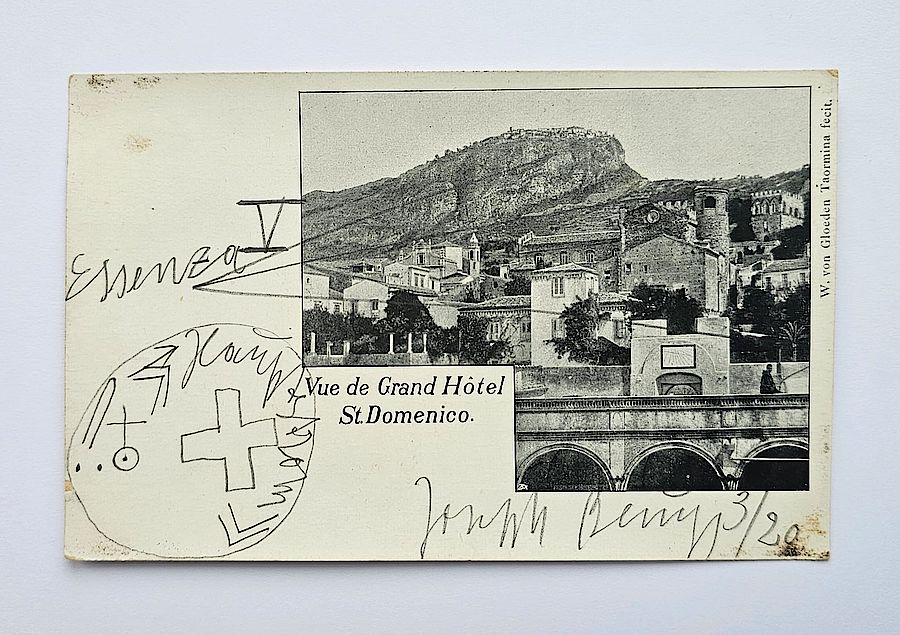 Essenza
Vue de Grand Hôtel
St. Domenico.
W. von Gloeden Taormina fecit.
Joseph Beuys 3/20